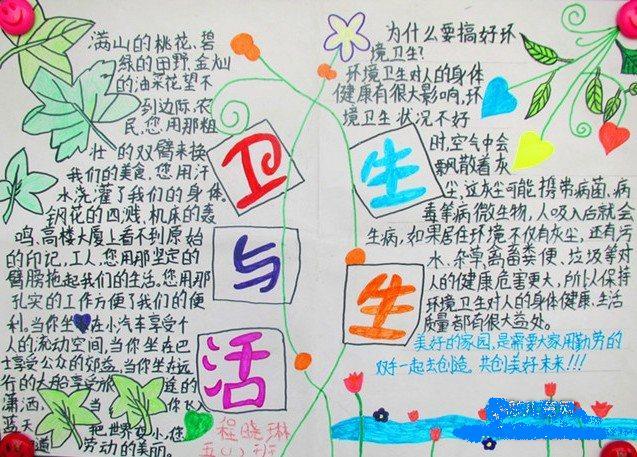 满山的桃花、碧
绿的田野,金灿
的油菜花望不
到边际,农
民,您用那粗
壮的双臂来换
我们的美食,您用汗
水浇灌了我们的身体。
钢花的四溅,机床的轰
鸣,高楼大厦上看不到原始
的印记,工人,您用那坚定的
臂膀拖起我们的生活。您用那
扎实的工作方便了我们的便
利。当你坐在小汽车享受个
人的流动空间,当你坐在巴
士享受公众的郊游,当你坐在远
行的大船享受旅途的
潇洒,当你飞入
蓝天 把世界变小,您
道 劳动的美丽。
卫生
与生
活
程晓琳
五(1)班
为什么要搞好环
境卫生?
环境卫生对人的身体
健康有很大影响,环
境卫生状况不好
时,空气中会
飘散着灰
尘,这灰尘可能携带病菌、病
毒等病微生物,人吸入后就会
生病,如果居住环境不仅有灰尘,还有污
水、杂草,禽畜粪便、垃圾等对
人的健康危害更大,所以保持
环境卫生对人的身体健康、生活
质量都有很大益处。
美好的家园,是需要大家用勤劳的
双手一起去创造,共创美好未来!!!